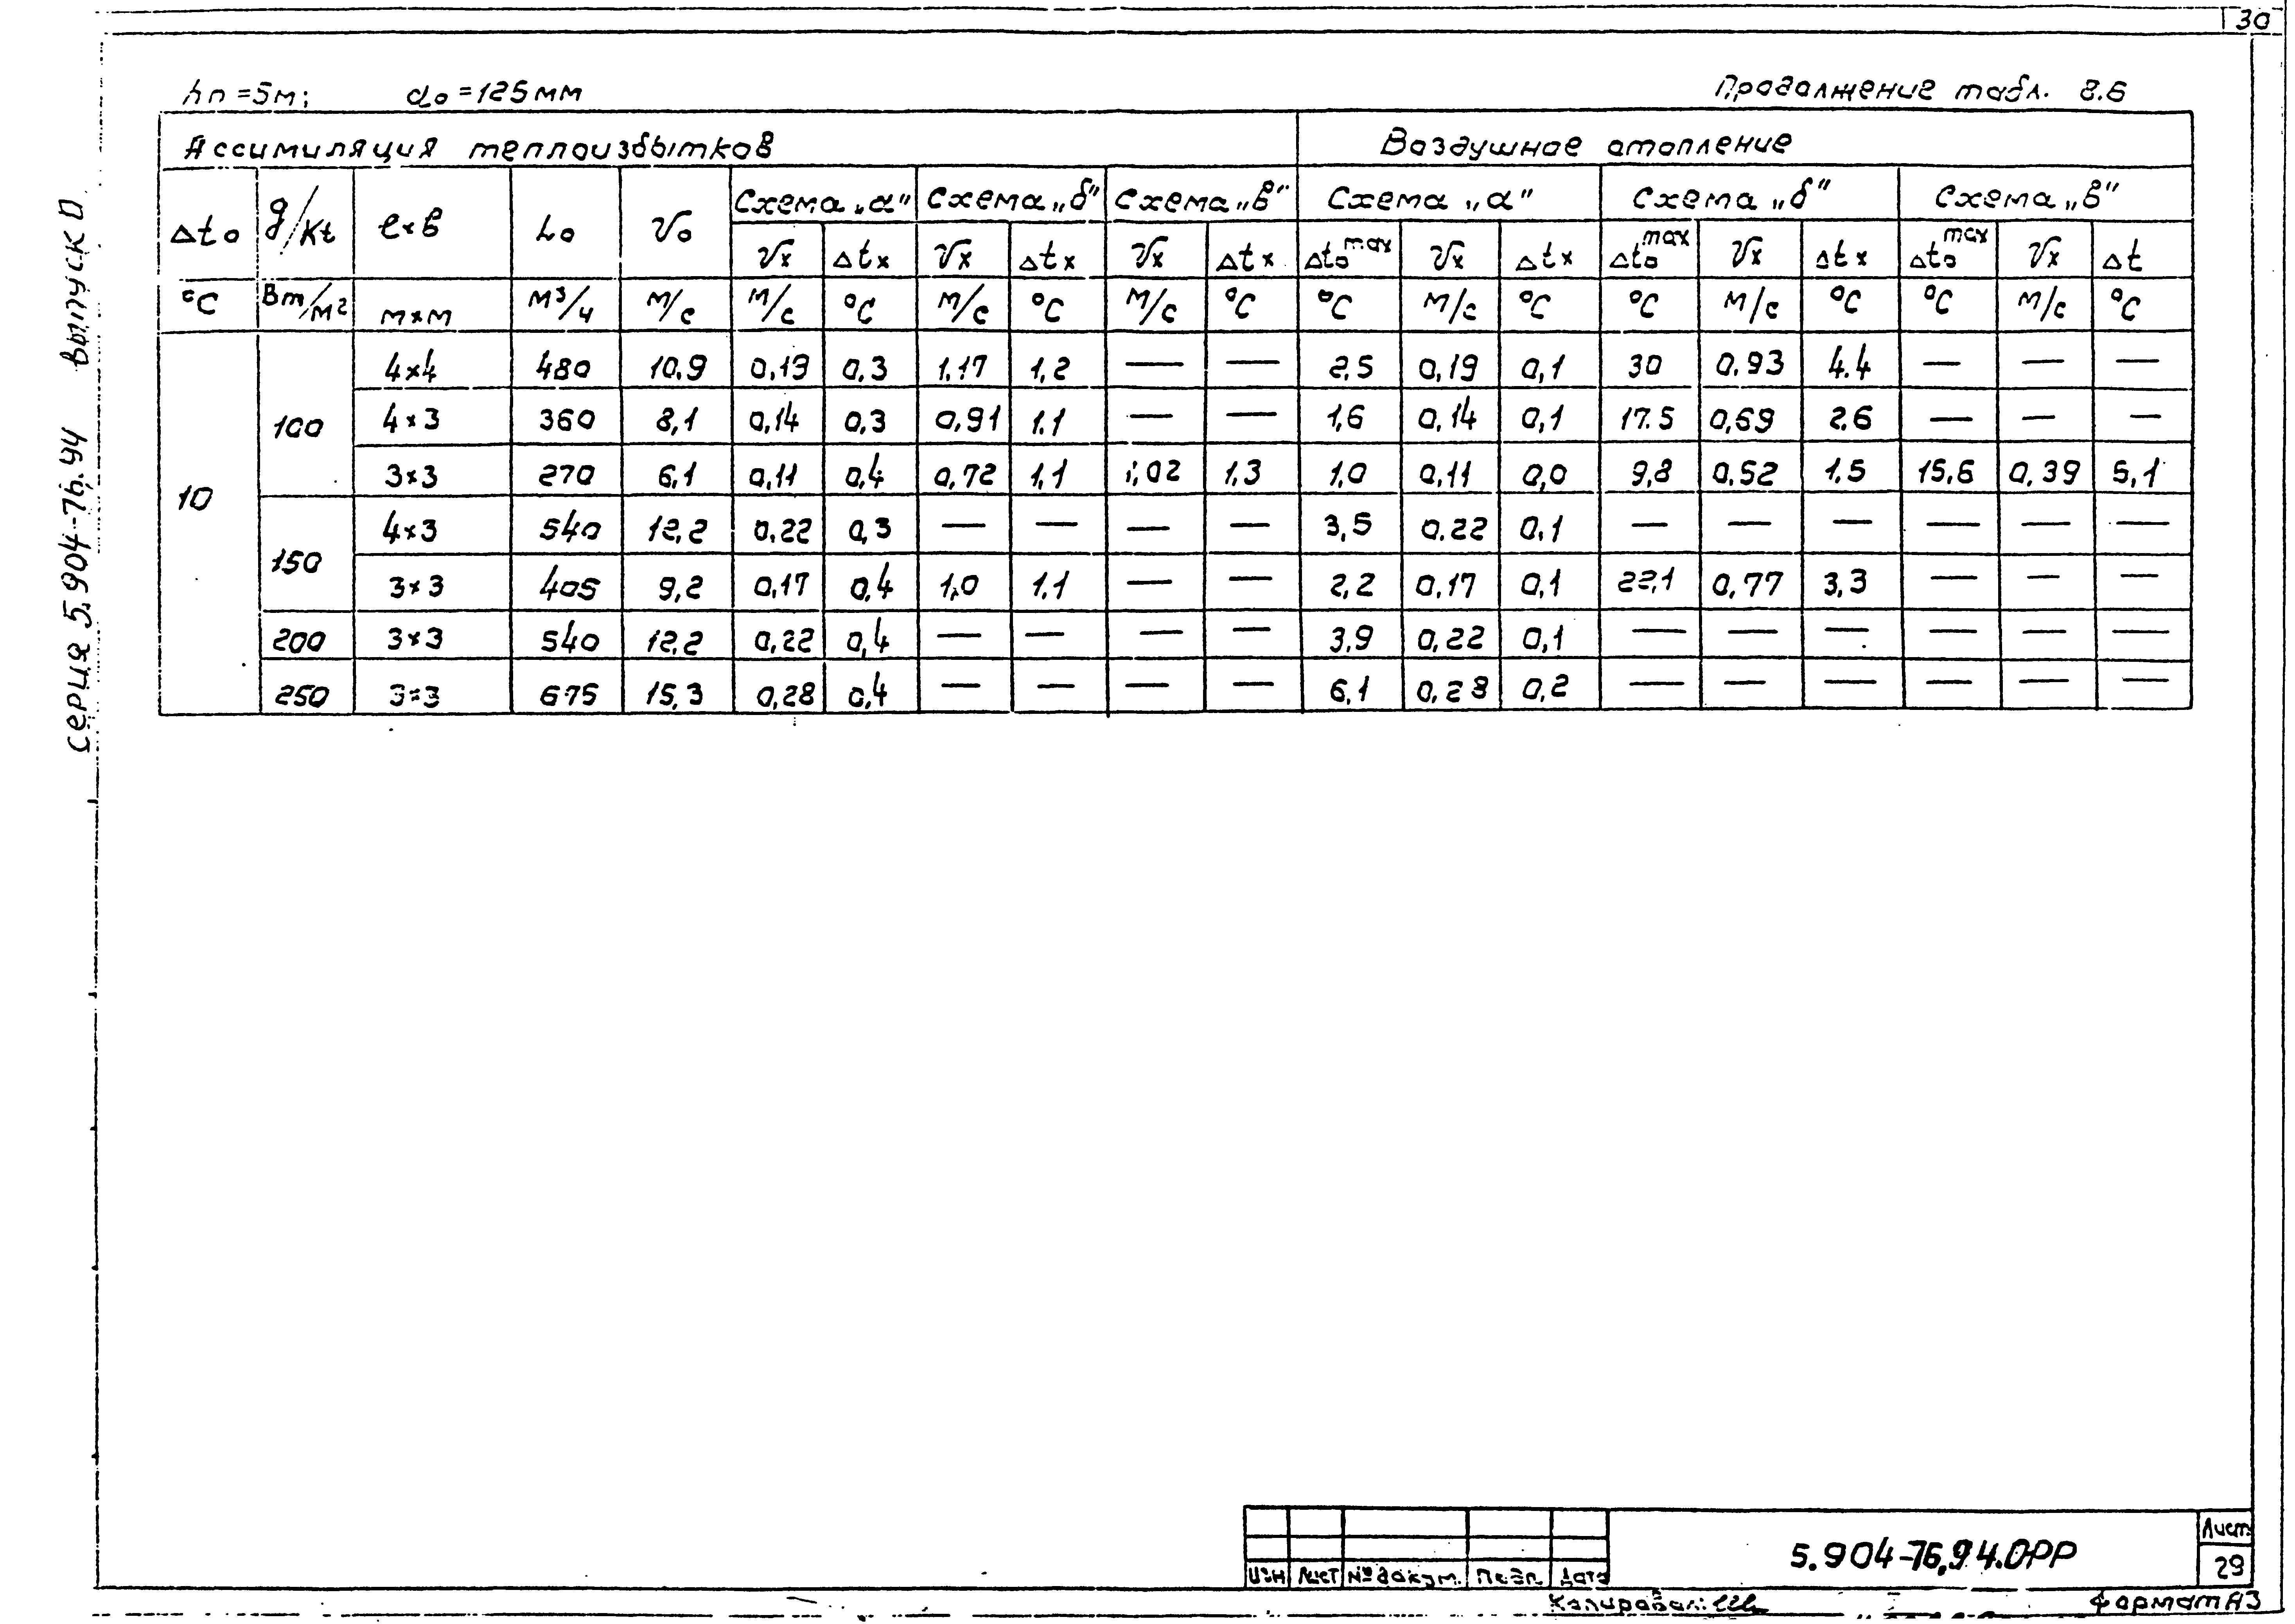 30
hп = 5м; dо = 125 мм Продолжение табл. 8.6
Ассимиляция теплоизбытков Воздушное отопление
Δto g/Kt l×в Lo Vo Схема „а" Схема „б" Схема „в" Схема „а" Схема „б" Схема „в"
Vx Δtx Vx Δtx Vx Δtx Δto max Vx Δtx Δto max Vx Δtx Δto max Vx Δt
°C Вт/м² м×м м³/ч м/с м/с °C м/с °C м/с °C °C м/с °C °C м/с °C °C м/с °C
10 100 4×4 480 10,9 0,19 0,3 1,17 1,2 — — 2,5 0,19 0,1 30 0,93 4.4 — — —
4×3 360 8,1 0,14 0,3 0,91 1.1 — — 1,6 0,14 0,1 17.5 0,69 2.6 — — —
3×3 270 6,1 0,11 0,4 0,72 1,1 1,02 1,3 1,0 0,11 0,0 9,8 0,52 1,5 15,6 0,39 5,1
150 4×3 540 12,2 0,22 0,3 — — — — 3,5 0,22 0,1 — — — — — —
3×3 405 9,2 0,17 0,4 1,0 1,1 — — 2,2 0,17 0,1 22,1 0,77 3,3 — — —
200 3×3 540 12,2 0,22 0,4 — — — — 3,9 0,22 0,1 — — — — — —
250 3×3 675 15,3 0,28 0,4 — — — — 6,1 0,28 0,2 — — — — — —
серия 5.904-76.94 выпуск 0
5.904-76,94.0РР
Лист
29
Изм Лист № докум. Подп. Дата
Копировал:
Формат А3